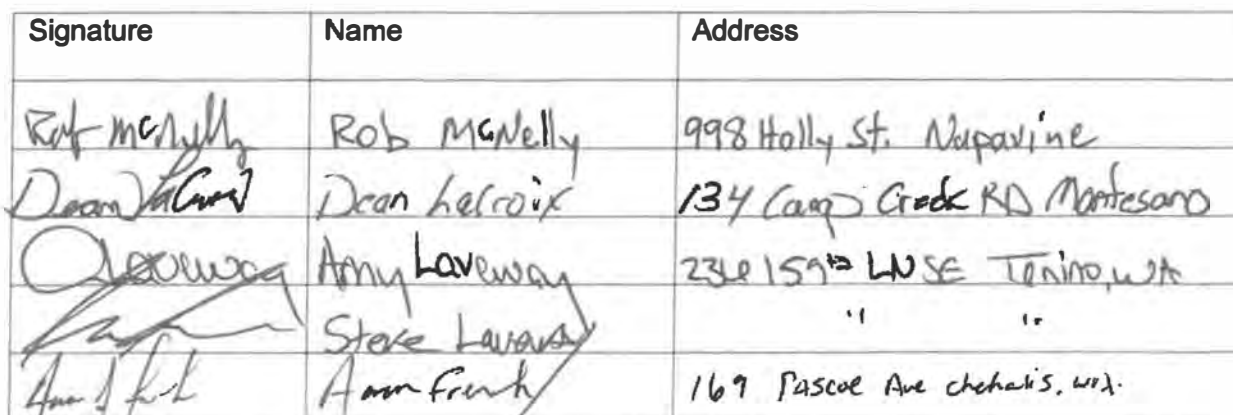 Signature Name Address
Rob McNelly Rob McNelly 998 Holly St. Napavine
Dean LaCroix Dean LaCroix 134 Camp Creek RD Montesano
Laveway Amy Laveway 159th LN SE Tenino, WA
Steve Laveway " "
169 Pascoe Ave chehalis, wa.